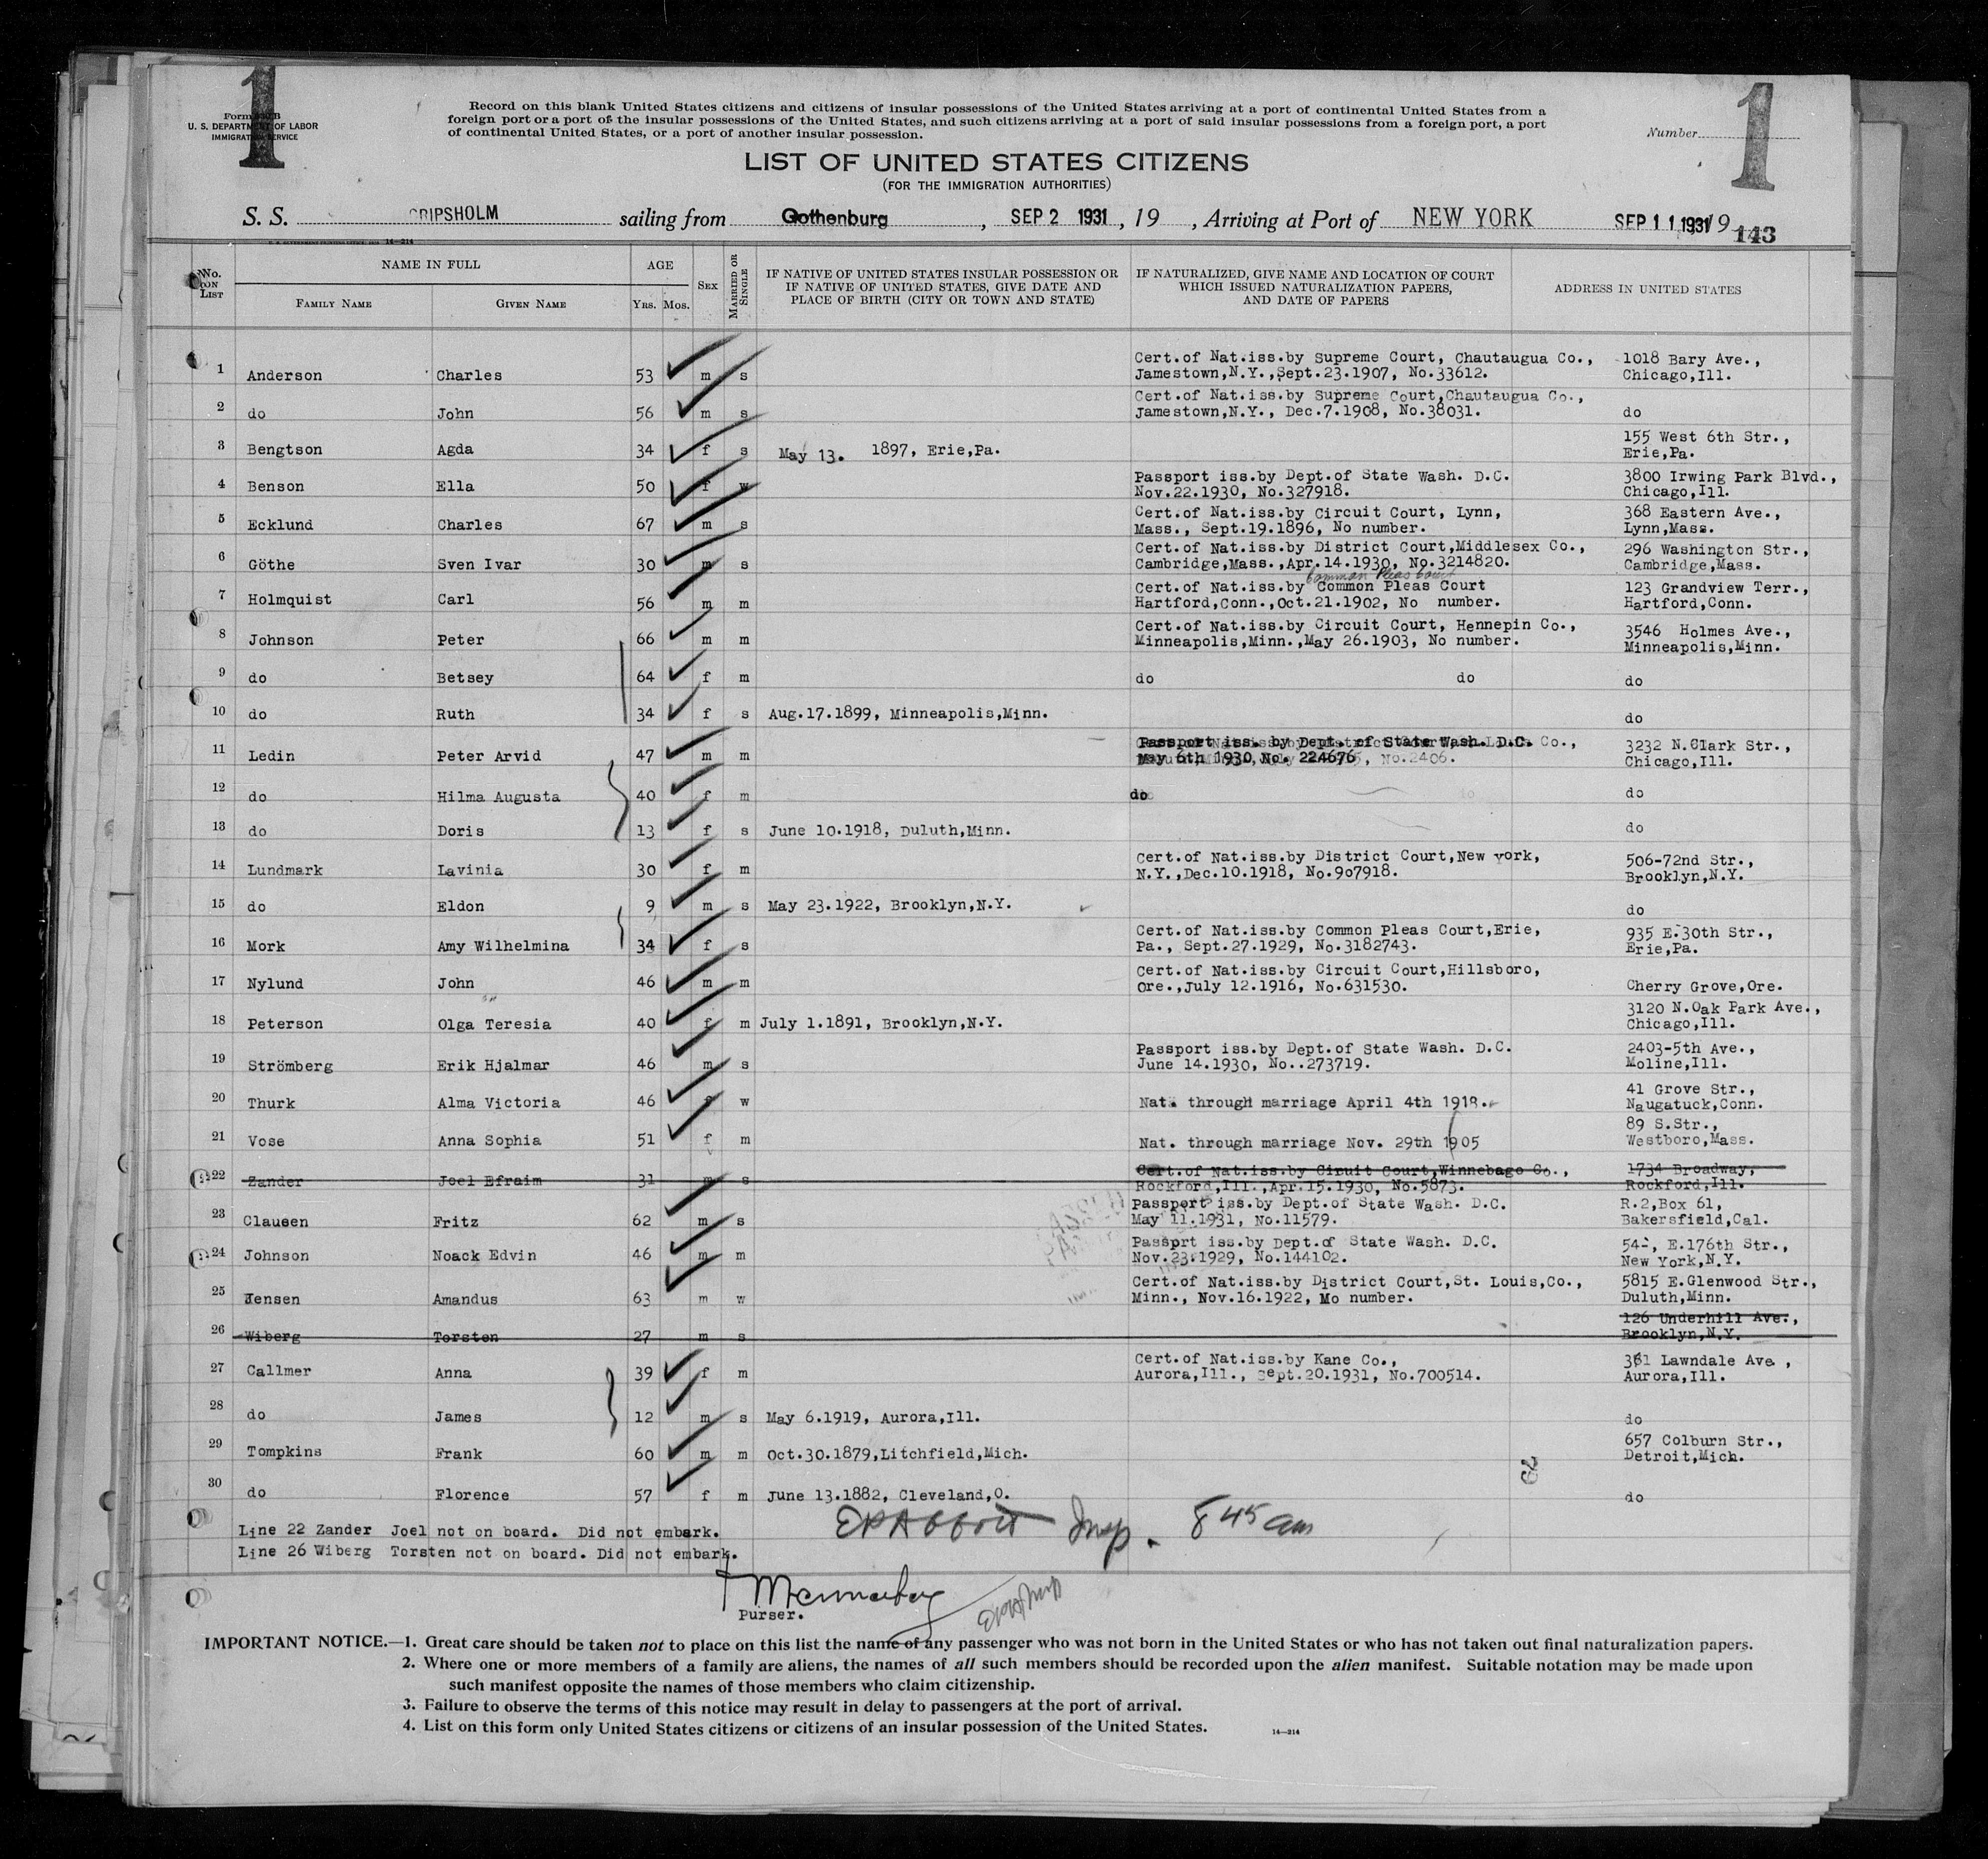 1
1
Form
U. S. DEPARTMENT OF LABOR
IMMIGRATION SERVICE
Record on this blank United States citizens and citizens of insular possessions of the United States arriving at a port of continental United States from a
foreign port or a port of the insular possessions of the United States, and such citizens arriving at a port of said insular possessions from a foreign port, a port
of continental United States, or a port of another insular possession.
Number
LIST OF UNITED STATES CITIZENS
(FOR THE IMMIGRATION AUTHORITIES)
S. S. GRIPSHOLM sailing from Gothenburg, SEP 2 1931, 19 , Arriving at Port of NEW YORK SEP 11 1931 19
143
No. on List NAME IN FULL AGE Sex Married or Single IF NATIVE OF UNITED STATES INSULAR POSSESSION OR IF NATIVE OF UNITED STATES, GIVE DATE AND PLACE OF BIRTH (CITY OR TOWN AND STATE) IF NATURALIZED, GIVE NAME AND LOCATION OF COURT WHICH ISSUED NATURALIZATION PAPERS, AND DATE OF PAPERS ADDRESS IN UNITED STATES
Family Name Given Name Yrs. Mos.
Cert.of Nat.iss.by Supreme Court, Chautaugua Co., 1018 Bary Ave.,
1 Anderson Charles 53 m s Jamestown,N.Y.,Sept.23.1907, No.33612. Chicago,Ill.
Cert.of Nat.iss.by Supreme Court,Chautaugua Co.,
2 do John 56 m s Jamestown,N.Y., Dec.7.1908, No.38031. do
155 West 6th Str.,
3 Bengtson Agda 34 f s May 13. 1897, Erie,Pa. Erie,Pa.
Passport iss.by Dept.of State Wash. D.C. 3800 Irwing Park Blvd.,
4 Benson Ella 50 f w Nov.22.1930, No.327918. Chicago,Ill.
Cert.of Nat.iss.by Circuit Court, Lynn, 368 Eastern Ave.,
5 Ecklund Charles 67 m s Mass., Sept.19.1896, No number. Lynn,Mass.
Cert.of Nat.iss.by District Court,Middlesex Co., 296 Washington Str.,
6 Göthe Sven Ivar 30 m s Cambridge,Mass.,Apr.14.1930, No.3214820. Cambridge,Mass.
Common Pleas Court
Cert.of Nat.iss.by Common Pleas Court 123 Grandview Terr.,
7 Holmquist Carl 56 m m Hartford,Conn.,Oct.21.1902, No number. Hartford,Conn.
Cert.of Nat.iss.by Circuit Court, Hennepin Co., 3546 Holmes Ave.,
8 Johnson Peter 66 m m Minneapolis,Minn.,May 26.1903, No number. Minneapolis,Minn.
9 do Betsey 64 f m do do do
10 do Ruth 34 f s Aug.17.1899, Minneapolis,Minn. do
Passport iss. by Dept. of State Wash. D.C. Co., 3232 N.Clark Str.,
11 Ledin Peter Arvid 47 m m May 6th 1930 No. 224676, No.2406. Chicago,Ill.
12 do Hilma Augusta 40 f m do do
13 do Doris 13 f s June 10.1918, Duluth,Minn. do
Cert.of Nat.iss.by District Court,New York, 506-72nd Str.,
14 Lundmark Lavinia 30 f m N.Y.,Dec.10.1918, No.907918. Brooklyn,N.Y.
15 do Eldon 9 m s May 23.1922, Brooklyn,N.Y. do
Cert.of Nat.iss.by Common Pleas Court,Erie, 935 E.30th Str.,
16 Mork Amy Wilhelmina 34 f s Pa., Sept.27.1929, No.3182743. Erie,Pa.
Cert.of Nat.iss.by Circuit Court,Hillsboro,
17 Nylund John 46 m m Ore.,July 12.1916, No.631530. Cherry Grove,Ore.
3120 N.Oak Park Ave.,
18 Peterson Olga Teresia 40 f m July 1.1891, Brooklyn,N.Y. Chicago,Ill.
Passport iss.by Dept.of State Wash. D.C. 2403-5th Ave.,
19 Strömberg Erik Hjalmar 46 m s June 14.1930, No..273719. Moline,Ill.
41 Grove Str.,
20 Thurk Alma Victoria 46 f w Nat. through marriage April 4th 1918. Naugatuck,Conn.
89 S.Str.,
21 Vose Anna Sophia 51 f m Nat. through marriage Nov. 29th 1905 Westboro,Mass.
Cert.of Nat.iss.by Ciruit Court,Winnebago Co., 1734 Broadway,
22 Zander Joel Efraim 31 m s Rockford,Ill.,Apr.15.1930, No.5873. Rockford,Ill.
Passport iss.by Dept.of State Wash. D.C. R.2,Box 61,
23 Clausen Fritz 62 m s May 11.1931, No.11579. Bakersfield,Cal.
Passprt iss.by Dept.of State Wash. D.C. E.176th Str.,
24 Johnson Noack Edvin 46 m m Nov.23.1929, No.144102. New York,N.Y.
Cert.of Nat.iss.by District Court,St. Louis,Co., 5815 E.Glenwood Str.,
25 Jensen Amandus 63 m w Minn., Nov.16.1922, Mo number. Duluth,Minn.
126 Underhill Ave.,
26 Wiberg Torsten 27 m s Brooklyn,N.Y.
Cert.of Nat.iss.by Kane Co., Lawndale Ave ,
27 Callmer Anna 39 f m Aurora,Ill., Sept.20.1931, No.700514. Aurora,Ill.
28 do James 12 m s May 6.1919, Aurora,Ill. do
657 Colburn Str.,
29 Tompkins Frank 60 m m Oct.30.1879,Litchfield,Mich. Detroit,Mich.
30 do Florence 57 f m June 13.1882, Cleveland,O. do
29
Line 22 Zander Joel not on board. Did not embark.
Line 26 Wiberg Torsten not on board. Did not embark.
EPAbbott Insp. 8 45 am
Purser.
IMPORTANT NOTICE.—1. Great care should be taken not to place on this list the name of any passenger who was not born in the United States or who has not taken out final naturalization papers.
2. Where one or more members of a family are aliens, the names of all such members should be recorded upon the alien manifest. Suitable notation may be made upon
such manifest opposite the names of those members who claim citizenship.
3. Failure to observe the terms of this notice may result in delay to passengers at the port of arrival.
4. List on this form only United States citizens or citizens of an insular possession of the United States.
14—214